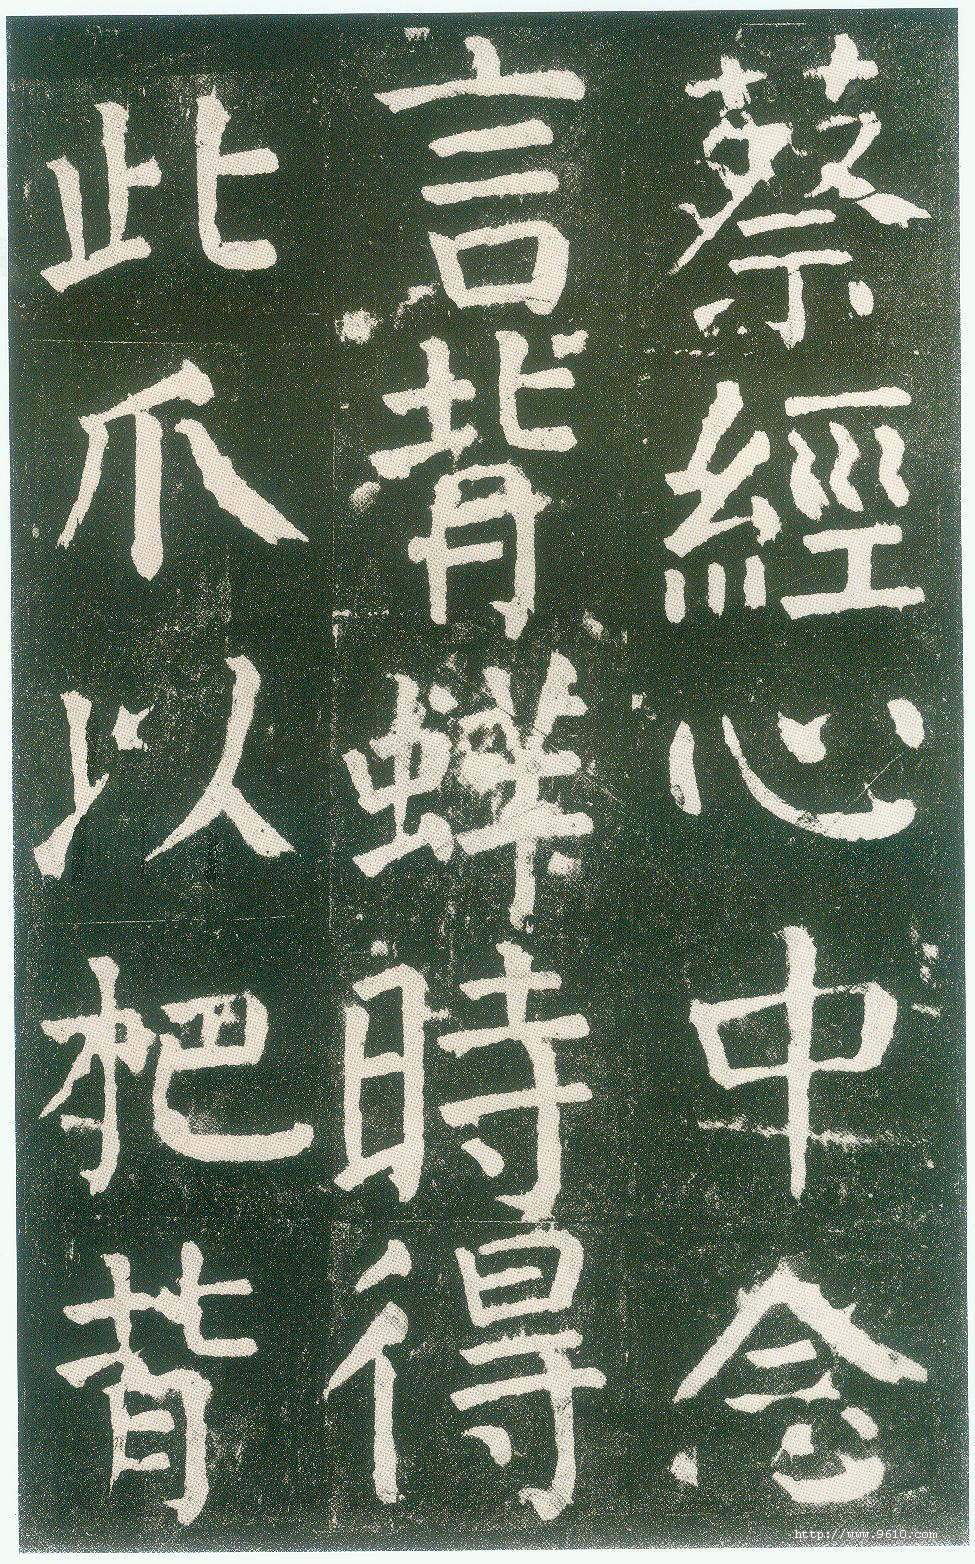 蔡經心中念
言背蛘時得
此爪以杷背
http://www.9610.com